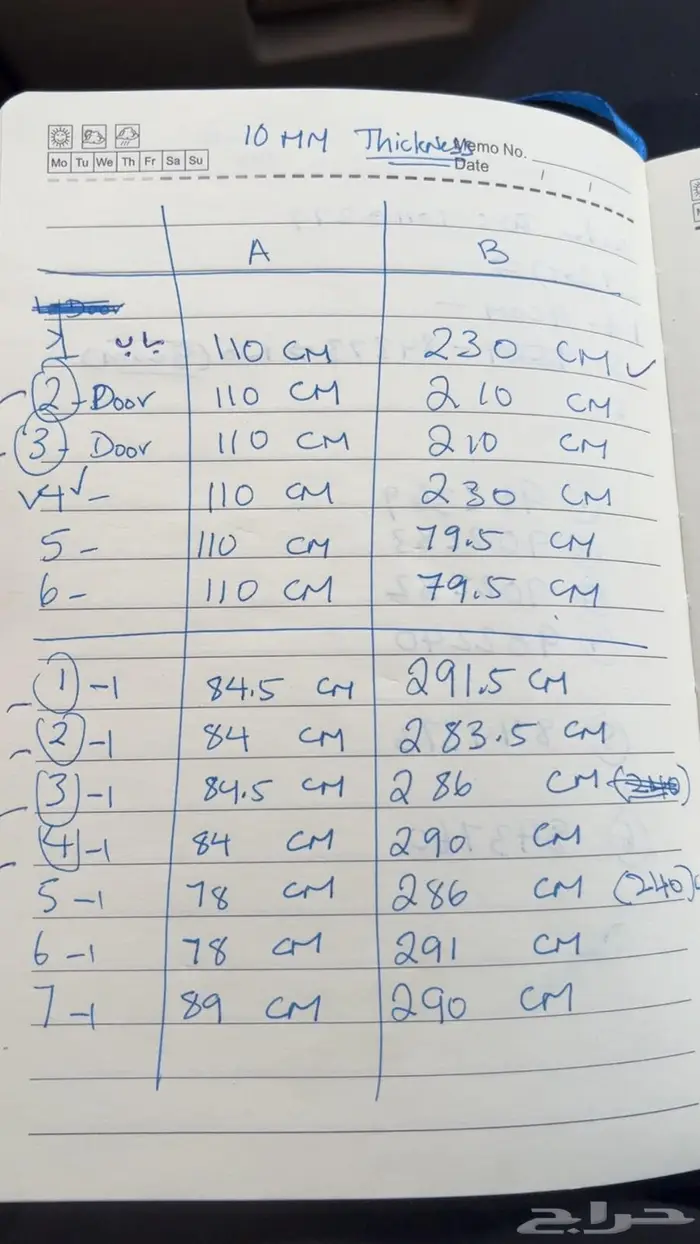 10 MM Thickness
Memo No.
Mo Tu We Th Fr Sa Su
Date
A B
1- Door
1 باب 110 CM 230 CM ✓
2 - Door 110 CM 210 CM
3 - Door 110 CM 210 CM
✓4✓ - 110 CM 230 CM
5 - 110 CM 79.5 CM
6 - 110 CM 79.5 CM
1 -1 84.5 CM 291.5 CM
2 -1 84 CM 283.5 CM
3 -1 84.5 CM 286 CM
4 -1 84 CM 290 CM
5 -1 78 CM 286 CM (240)
6 -1 78 CM 291 CM
7 -1 89 CM 290 CM
حراج